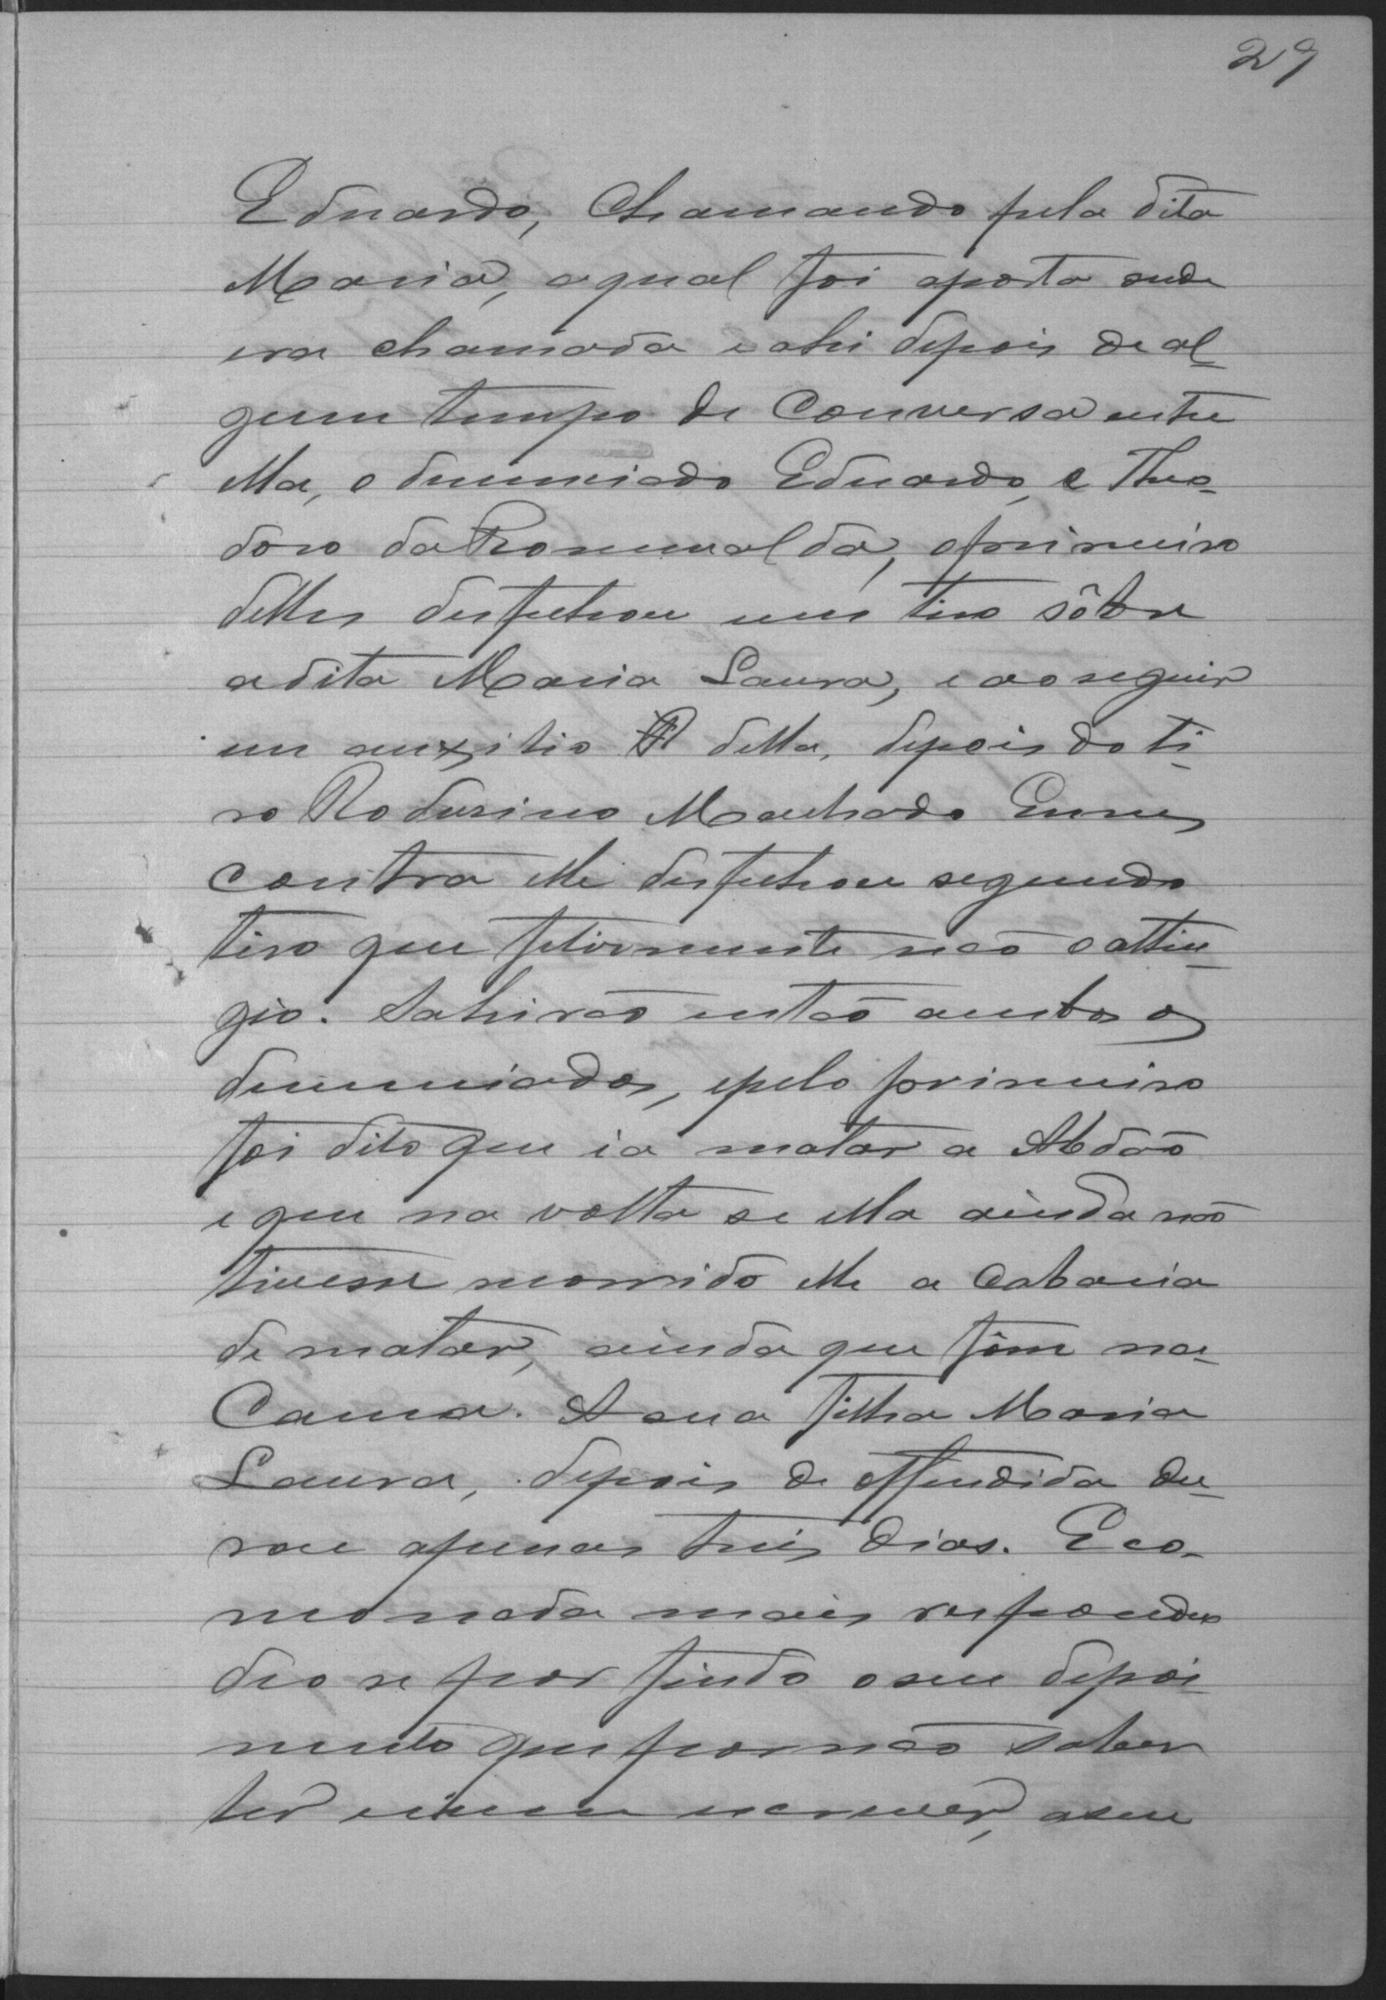 29
Eduardo, chamando pela dita
Maria, a qual foi aporta onde
era chamada e ahi depois de al-
gum tempo de conversa entre
ella, o denunciado Eduardo, e Theo-
doro da Romualda, o primeiro
delles desfechou um tiro sôbre
a dita Maria Laura, e ao seguir
em auxilio della, depois do ti-
ro Roduzino Machado Ennes
contra elle desfechou segundo
tiro que felismente não o attin-
gio. Sahirão então ambos os
denunciados, e pelo primeiro
foi dito que ia matar a Abdão
e que na volta se ella ainda não
tivesse morrido elle a cabaria
de matar, ainda que fôsse na
Cama. A sua filha Maria
Laura, depois de offendida du-
rou apenas treis dias. E co-
mo nada mais respondeu
deo se por findo o seu depoi-
mento que por não saber
ler nem escrever, a seu